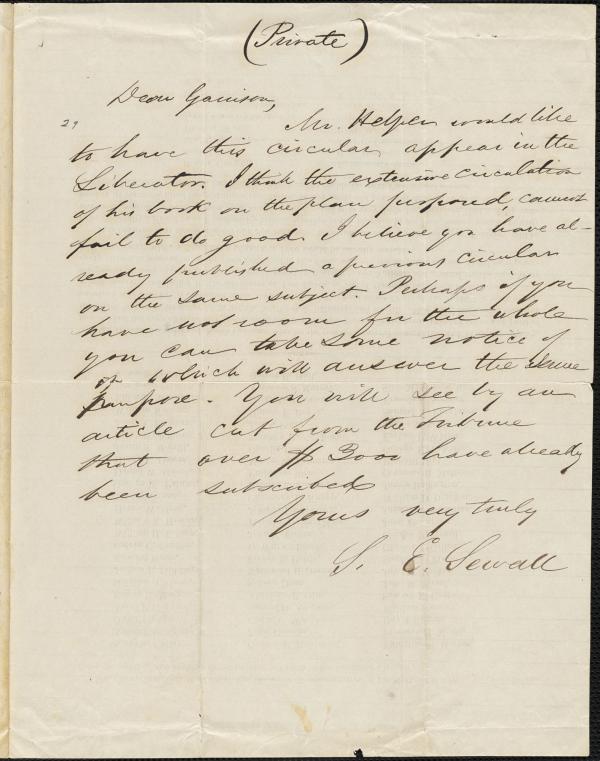 (Private)
Dear Garrison,
29
Mr. Helper would like
to have this circular appear in the
Liberator. I think the extensive circulation
of his book on the plan proposed, cannot
fail to do good. I believe you have al-
ready published a previous circular
on the same subject. Perhaps if you
have not room for the whole
you can take some notice of
it which will answer the same
purpose. You will see by an
article cut from the Tribune
that over $3000 have already
been subscribed
Yours very truly
S. E. Sewall